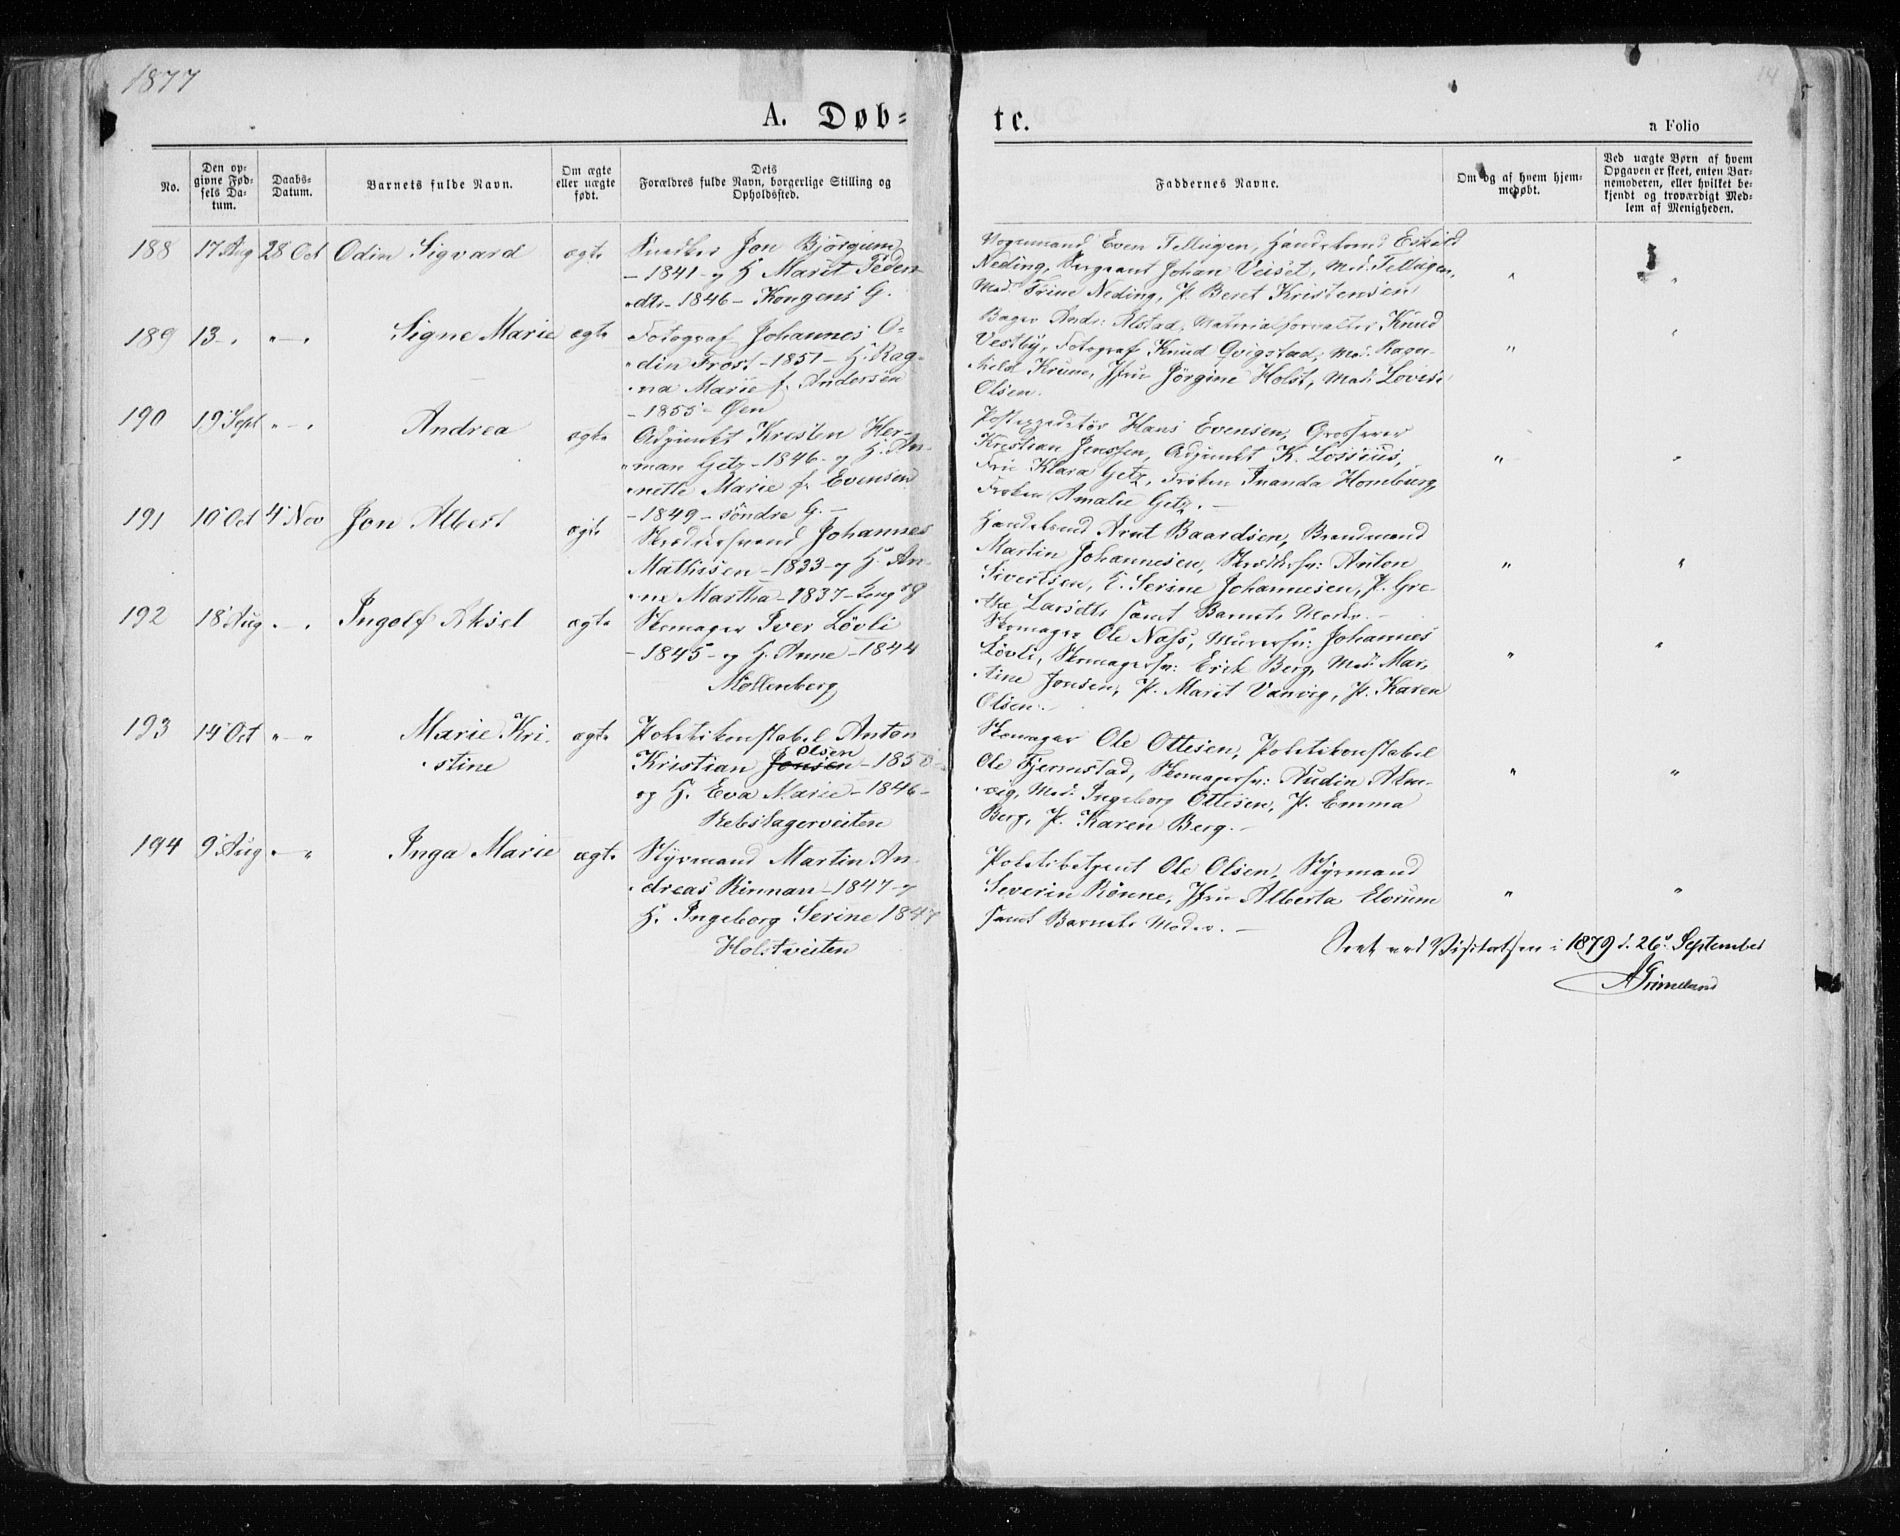 1877
14
A. Døb=
te.
a Folio
No.
Den op-
givne Fød-
sels Da-
tum.
Daabs-
Datum.
Barnets fulde Navn.
Om ægte
eller uægte
født.
Dets
Forældres fulde Navn, borgerlige Stilling og
Opholdssted.
Faddernes Navne.
Om og af hvem hjem-
medøbt.
Ved uægte Børn af hvem
Opgaven er skeet, enten Bar-
nemoderen, eller hvilket be-
kjendt og troværdigt Med-
lem af Menigheden.
188 17 Aug 28 Oct Odin Sigvard ægte
Snedker Jon Bjørgum
- 1841 - og H. Marit Peders-
dtr - 1846 - Kongens G.
Vognmand Even Tellugen, Handelsmd Eskild
Neding, Sergeant Johan Veiset, Mad. Tellugen,
Mad. Trine Neding, P. Beret Kristensen
189 13 - " - " Signe Marie ægte
Fotograf Johannes O-
din Frost - 1851 - H. Rag-
na Marie f. Andersen
- 1855 - Øen
Bager Andr: Alstad, Materialforvalter Knud
Vestby, Fotograf Knud Qvigstad, Mad. Ragn-
hild Krum, Jfru Jörgine Holst, Mad. Lovise
Olsen.
190 19 Sept " - " Andrea ægte
Adjunkt Kristen Her-
man Getz - 1846 - og H. An-
nette Marie f. Evensen
- 1849 - söndre G. -
Postexpeditör Hans Evensen, Grosserer
Kristian Jenssen, Adjunkt K. Lossius,
Frue Klara Getz, Fröken Inanda Homburg,
Fröken Amalie Getz. -
191 10 Oct 4 Nov Jon Albert ægte
Skrædersvend Johannes
Mathisen - 1833 - og H. An-
ne Martha - 1837 -
Handelsmd Arnt Baardsen, Brandmand
Martin Johannesen, Skrædersv: Anton
Sivertsen, E. Serine Johannesen, P. Gre-
the Larsdtr samt Barnets Moder. -
192 18 Aug " - " Ingolf Aksel ægte
Skomager Iver Lövli
- 1845 - og H. Anne - 1844
Möllenberg
Skomager Ole Næss, Murersv: Johannes
Lövli, Skomagersv: Erik Berg, Mad. Mar-
tine Jonsen, P. Marit Vanvig, P. Karen
Olsen. -
193 14 Oct " - " Marie Kri-
stine ægte
Politikonstabel Anton
Kristian Jonsen Olsen - 1850 -
og H. Eva Marie - 1846 -
Rebslagerveiten
Skomager Ole Ottesen, Politikonstabel
Ole Fjermstad, Skomagersv: Audin Alm-
vig, Mad. Ingeborg Ottesen, P. Emma
Berg, P. Karen Berg. -
194 9 Aug " - " Inga Marie ægte
Styrmand Martin An-
dreas Rinnan - 1847 - og
H. Ingeborg Serine 1847
Holstveiten
Politibetjent Ole Olsen, Styrmand
Severin Rönne, Jfru Alberta Elorum
samt Barnets Moder. -
Seet ved Visitatsen i 1879 d. 26 September
A Grimelund